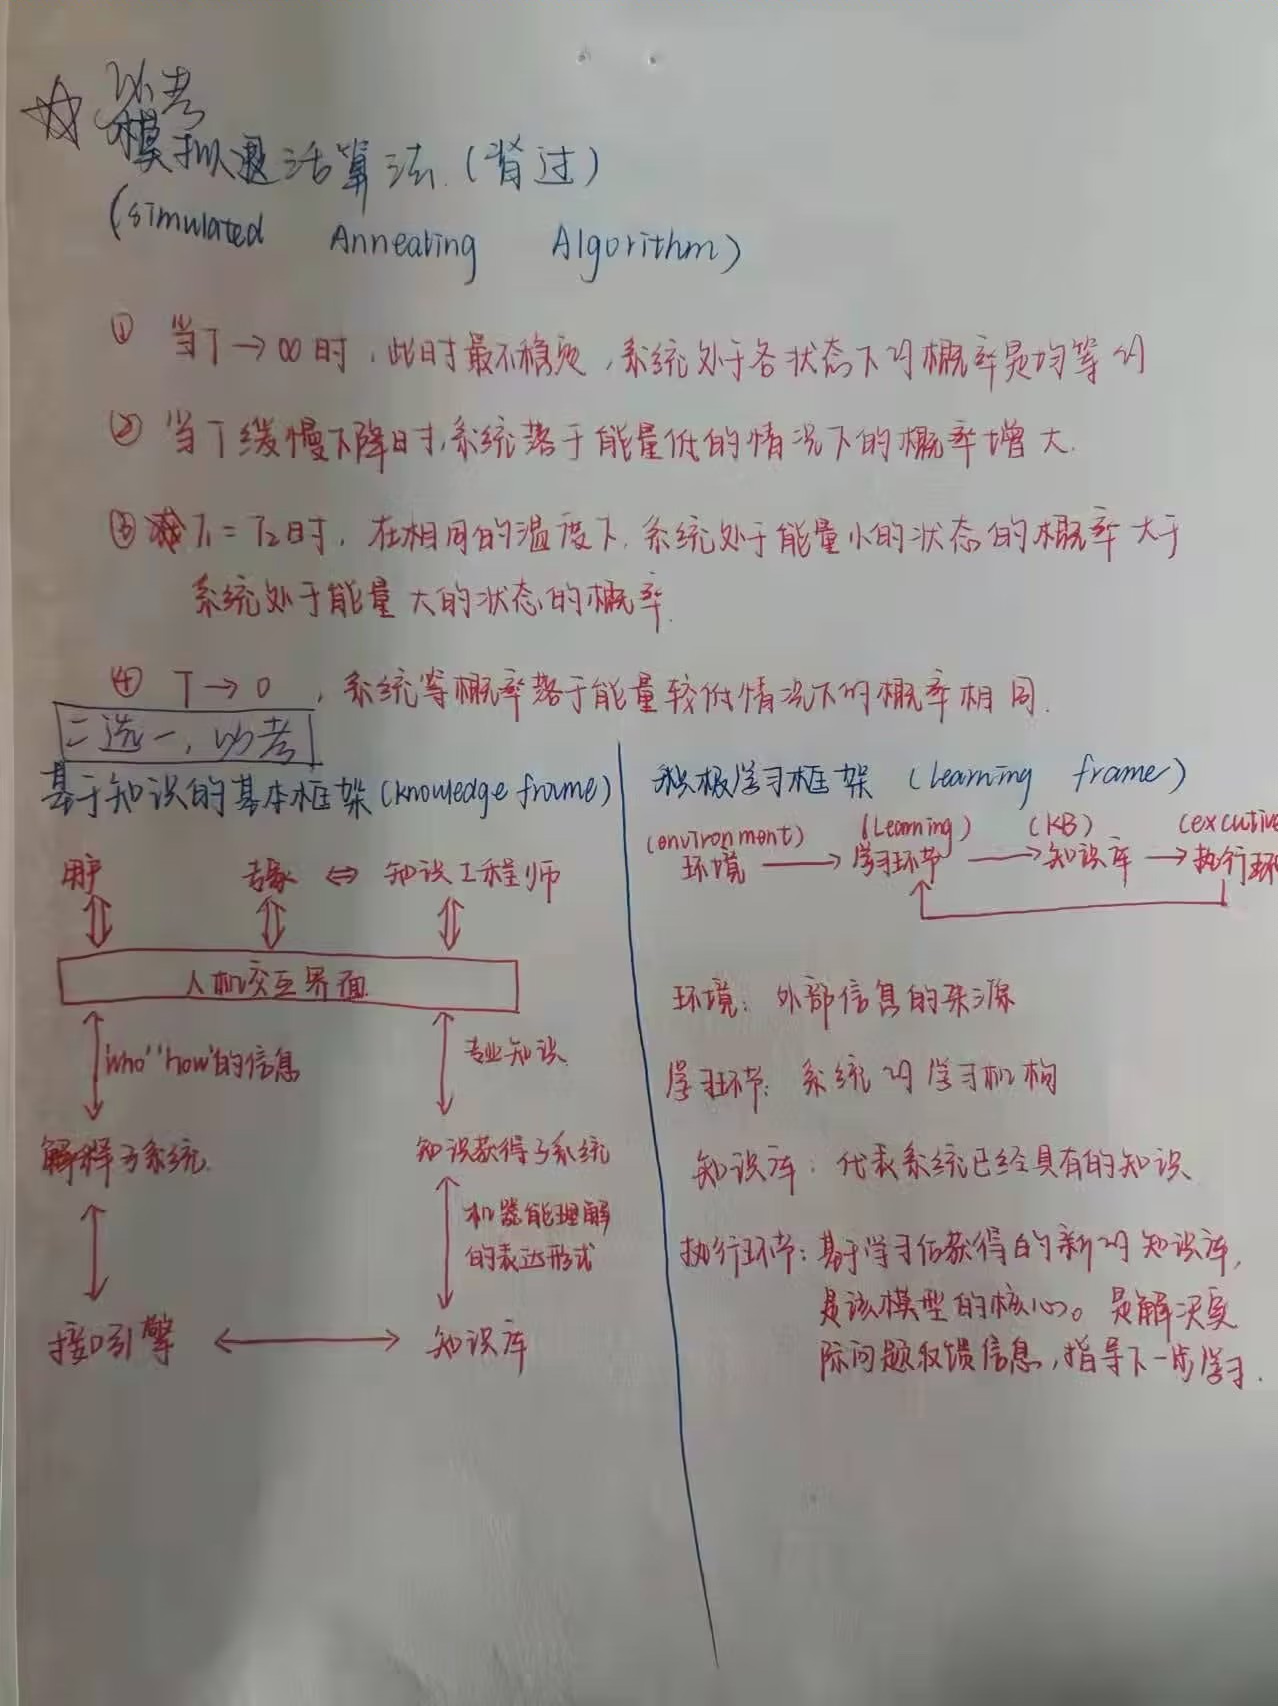 必考
模拟退活算法.(背过)
(simulated Annealing Algorithm)
① 当T→∞时,此时最不稳定,系统处于各状态下的概率是均等的
② 当T缓慢下降时,系统落于能量低的情况下的概率增大.
③ T1=T2时,在相同的温度下,系统处于能量小的状态的概率大于
系统处于能量大的状态的概率.
④ T→0,系统等概率落于能量较低情况下的概率相同.
二选一,必考
基于知识的基本框架(knowledge frame)
用户 专家 ⇔ 知识工程师
人机交互界面
'who''how'的信息 专业知识
解释子系统 知识获得子系统
机器能理解
的表达形式
接口引擎 ↔ 知识库
积极学习框架 (learning frame)
(environment) (Learning) (KB) (excutive
环境 → 学习环节 → 知识库 → 执行环
环境:外部信息的来源
学习环节:系统的学习机构
知识库:代表系统已经具有的知识
执行环节:基于学习后获得的新的知识库,
是该模型的核心。是解决实
际问题反馈信息,指导下一步学习.